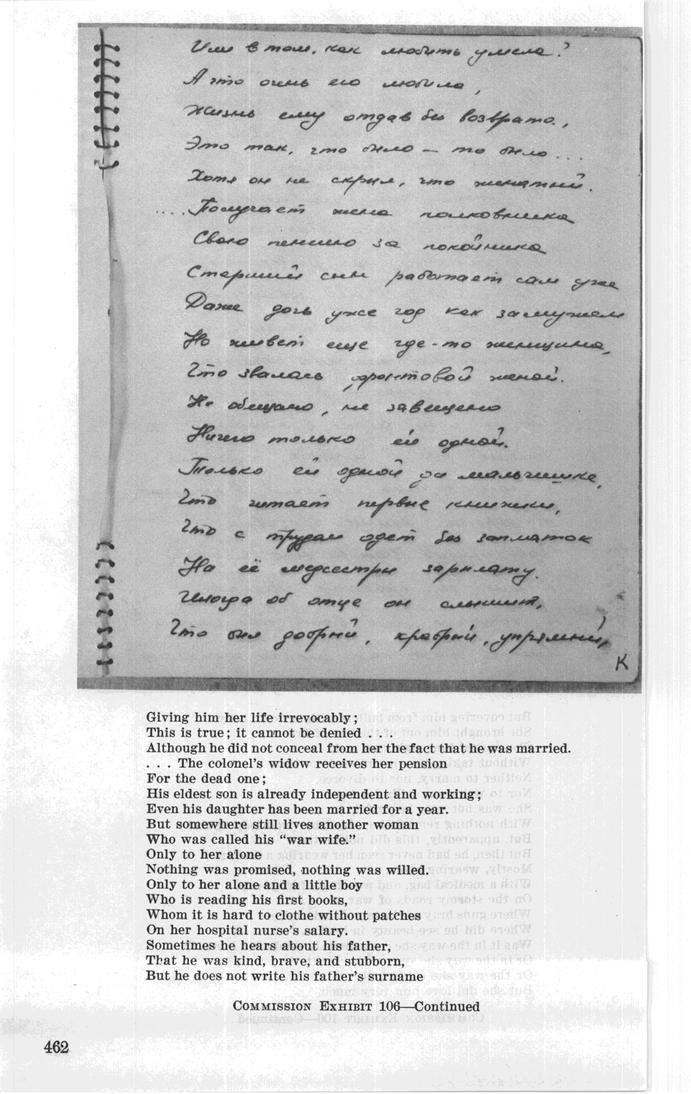 Или в том, как любить умела?
А что очень его любила,
Жизнь ему отдав без возврата.,
Это так, что было — то было ...
Хотя он не скрыл, что женатый.
.... Получает жена полковника
Свою пенсию за покойника
Старший сын работает сам уже
Даже дочь уже год как замужем
Но живет еще где-то женщина,
Что звалась фронтовой женой.
Не обещано, не завещено
Ничего только ей одной.
Только ей одной да мальчишке,
Что читает первые книжки,
Что с трудом одет без заплаток
На её медсестры зарплату.
Иногда об отце он слышит,
Что был добрый, храбрый, упрямый,
K
Giving him her life irrevocably;
This is true; it cannot be denied . . .
Although he did not conceal from her the fact that he was married.
. . . The colonel's widow receives her pension
For the dead one;
His eldest son is already independent and working;
Even his daughter has been married for a year.
But somewhere still lives another woman
Who was called his "war wife."
Only to her alone
Nothing was promised, nothing was willed.
Only to her alone and a little boy
Who is reading his first books,
Whom it is hard to clothe without patches
On her hospital nurse's salary.
Sometimes he hears about his father,
That he was kind, brave, and stubborn,
But he does not write his father's surname
COMMISSION EXHIBIT 106—Continued
462